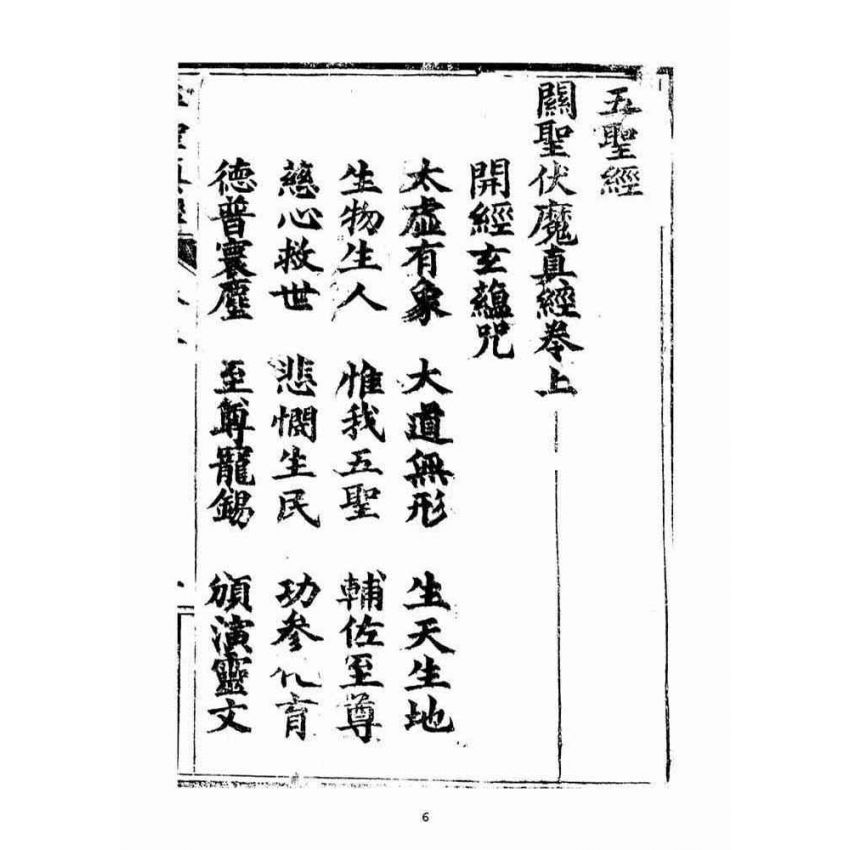 五聖經
關聖伏魔真經卷上
開經玄蘊咒
太虛有象 大道無形 生天生地
生物生人 惟我五聖 輔佐至尊
慈心救世 悲憫生民 功參化育
德普寰塵 至尊寵錫 頒演靈文
6